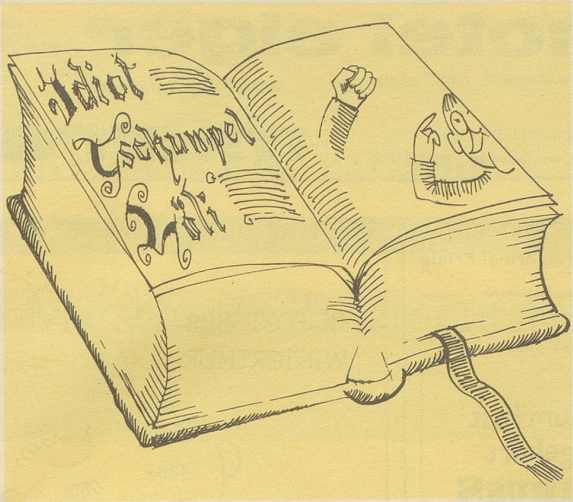 Idiot
Tschumpel
Löli